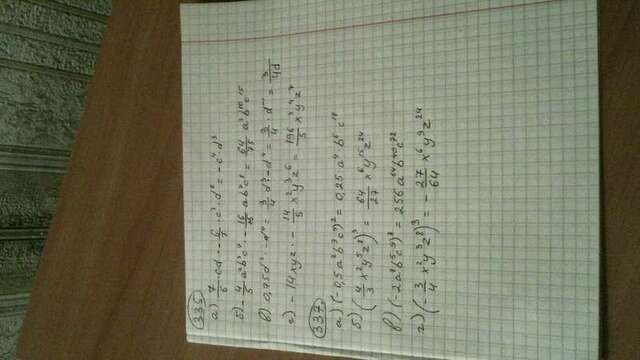 335
а) 7/6 · cd · - 6/7 · c³ · d² = - c⁴ · d³
б) - 4/5 a²b³c⁷ · - 16/15 ab⁷c⁸ = 64/75 a³b¹⁰c¹⁵
в) 0,75d³ · - d⁴ = 3/4 d³ · - d⁴ = 3/4 · d⁻¹ = 3/4d
г) - 14xyz · - 14/5 x²y³z⁶ = 196/5 x³y⁴z⁷
337
а) (-0,5a²b³c⁹)² = 0,25a⁴b⁶c¹⁸
б) (4/3 x²y⁵z⁸)³ = 64/27 x⁶y¹⁵z²⁴
в) (-2a⁸b⁵c⁹)⁸ = 256a⁶⁴b⁴⁰c⁷²
г) (- 3/4 x²y³z⁸)³ = - 27/64 x⁶y⁹z²⁴